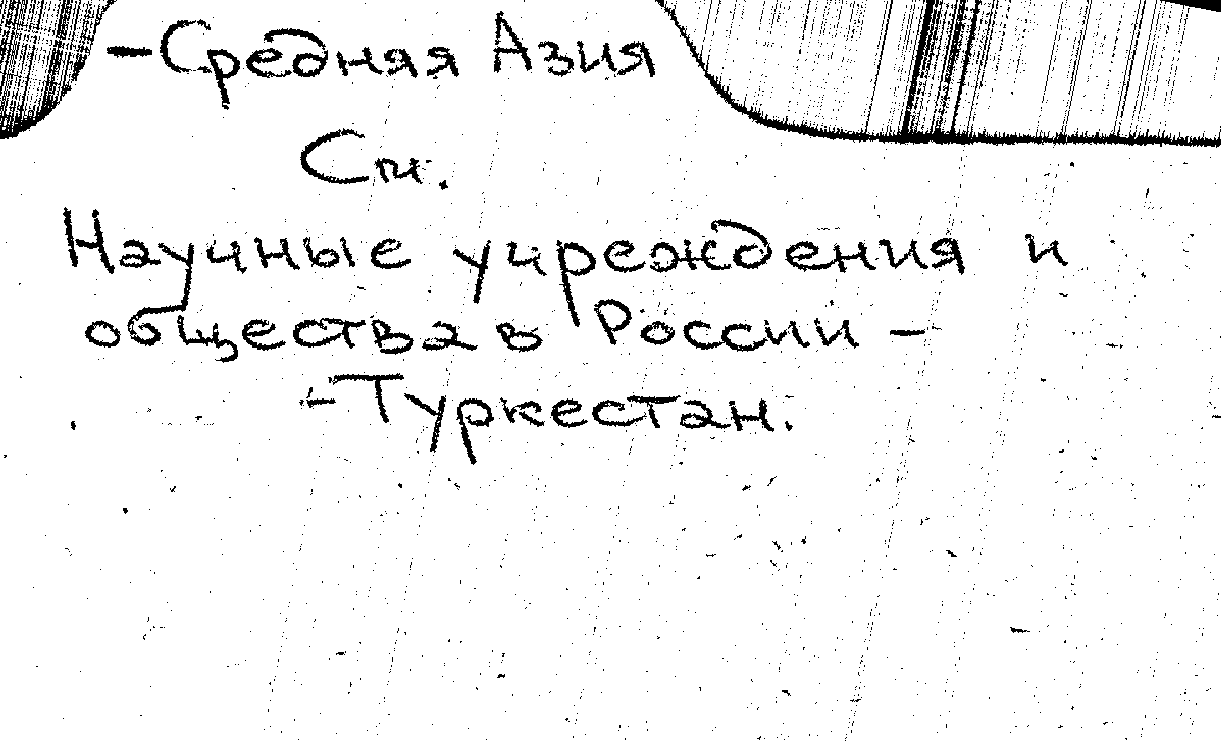 -Средняя Азия
См.
Научные учреждения и
общества в России -
-Туркестан.